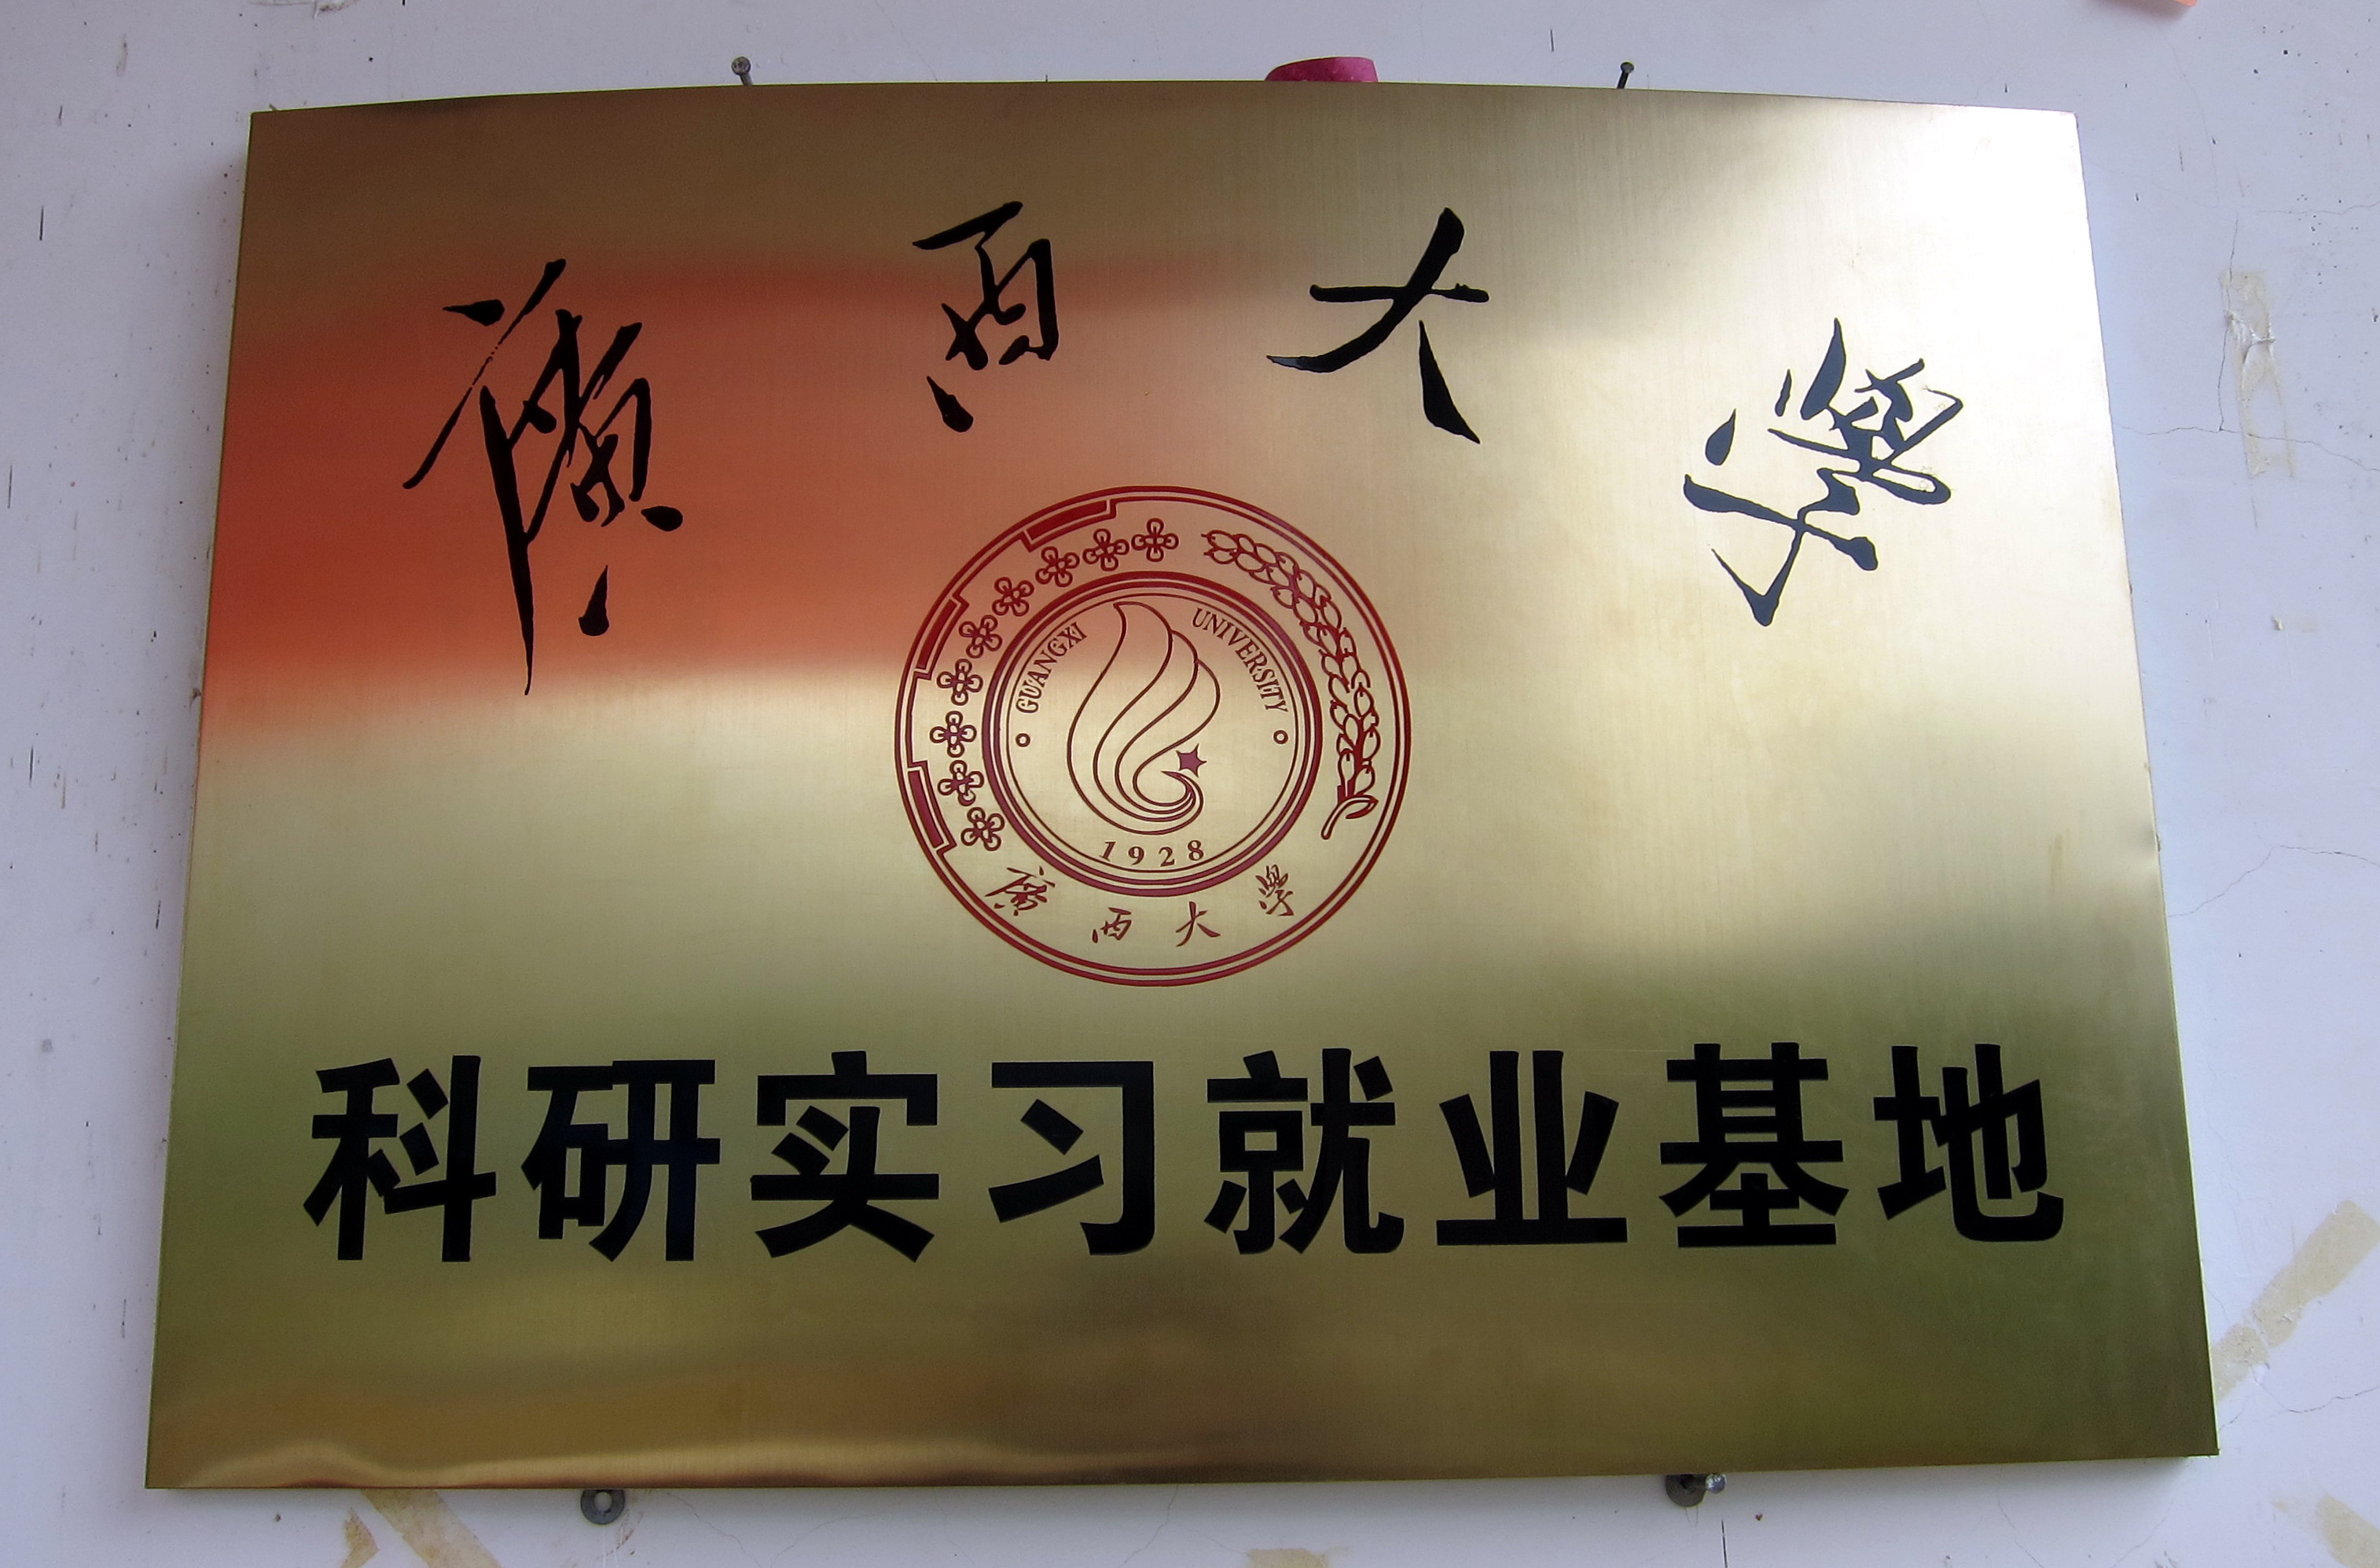 廣西大學
GUANGXI UNIVERSITY
1928
廣西大學
科研实习就业基地